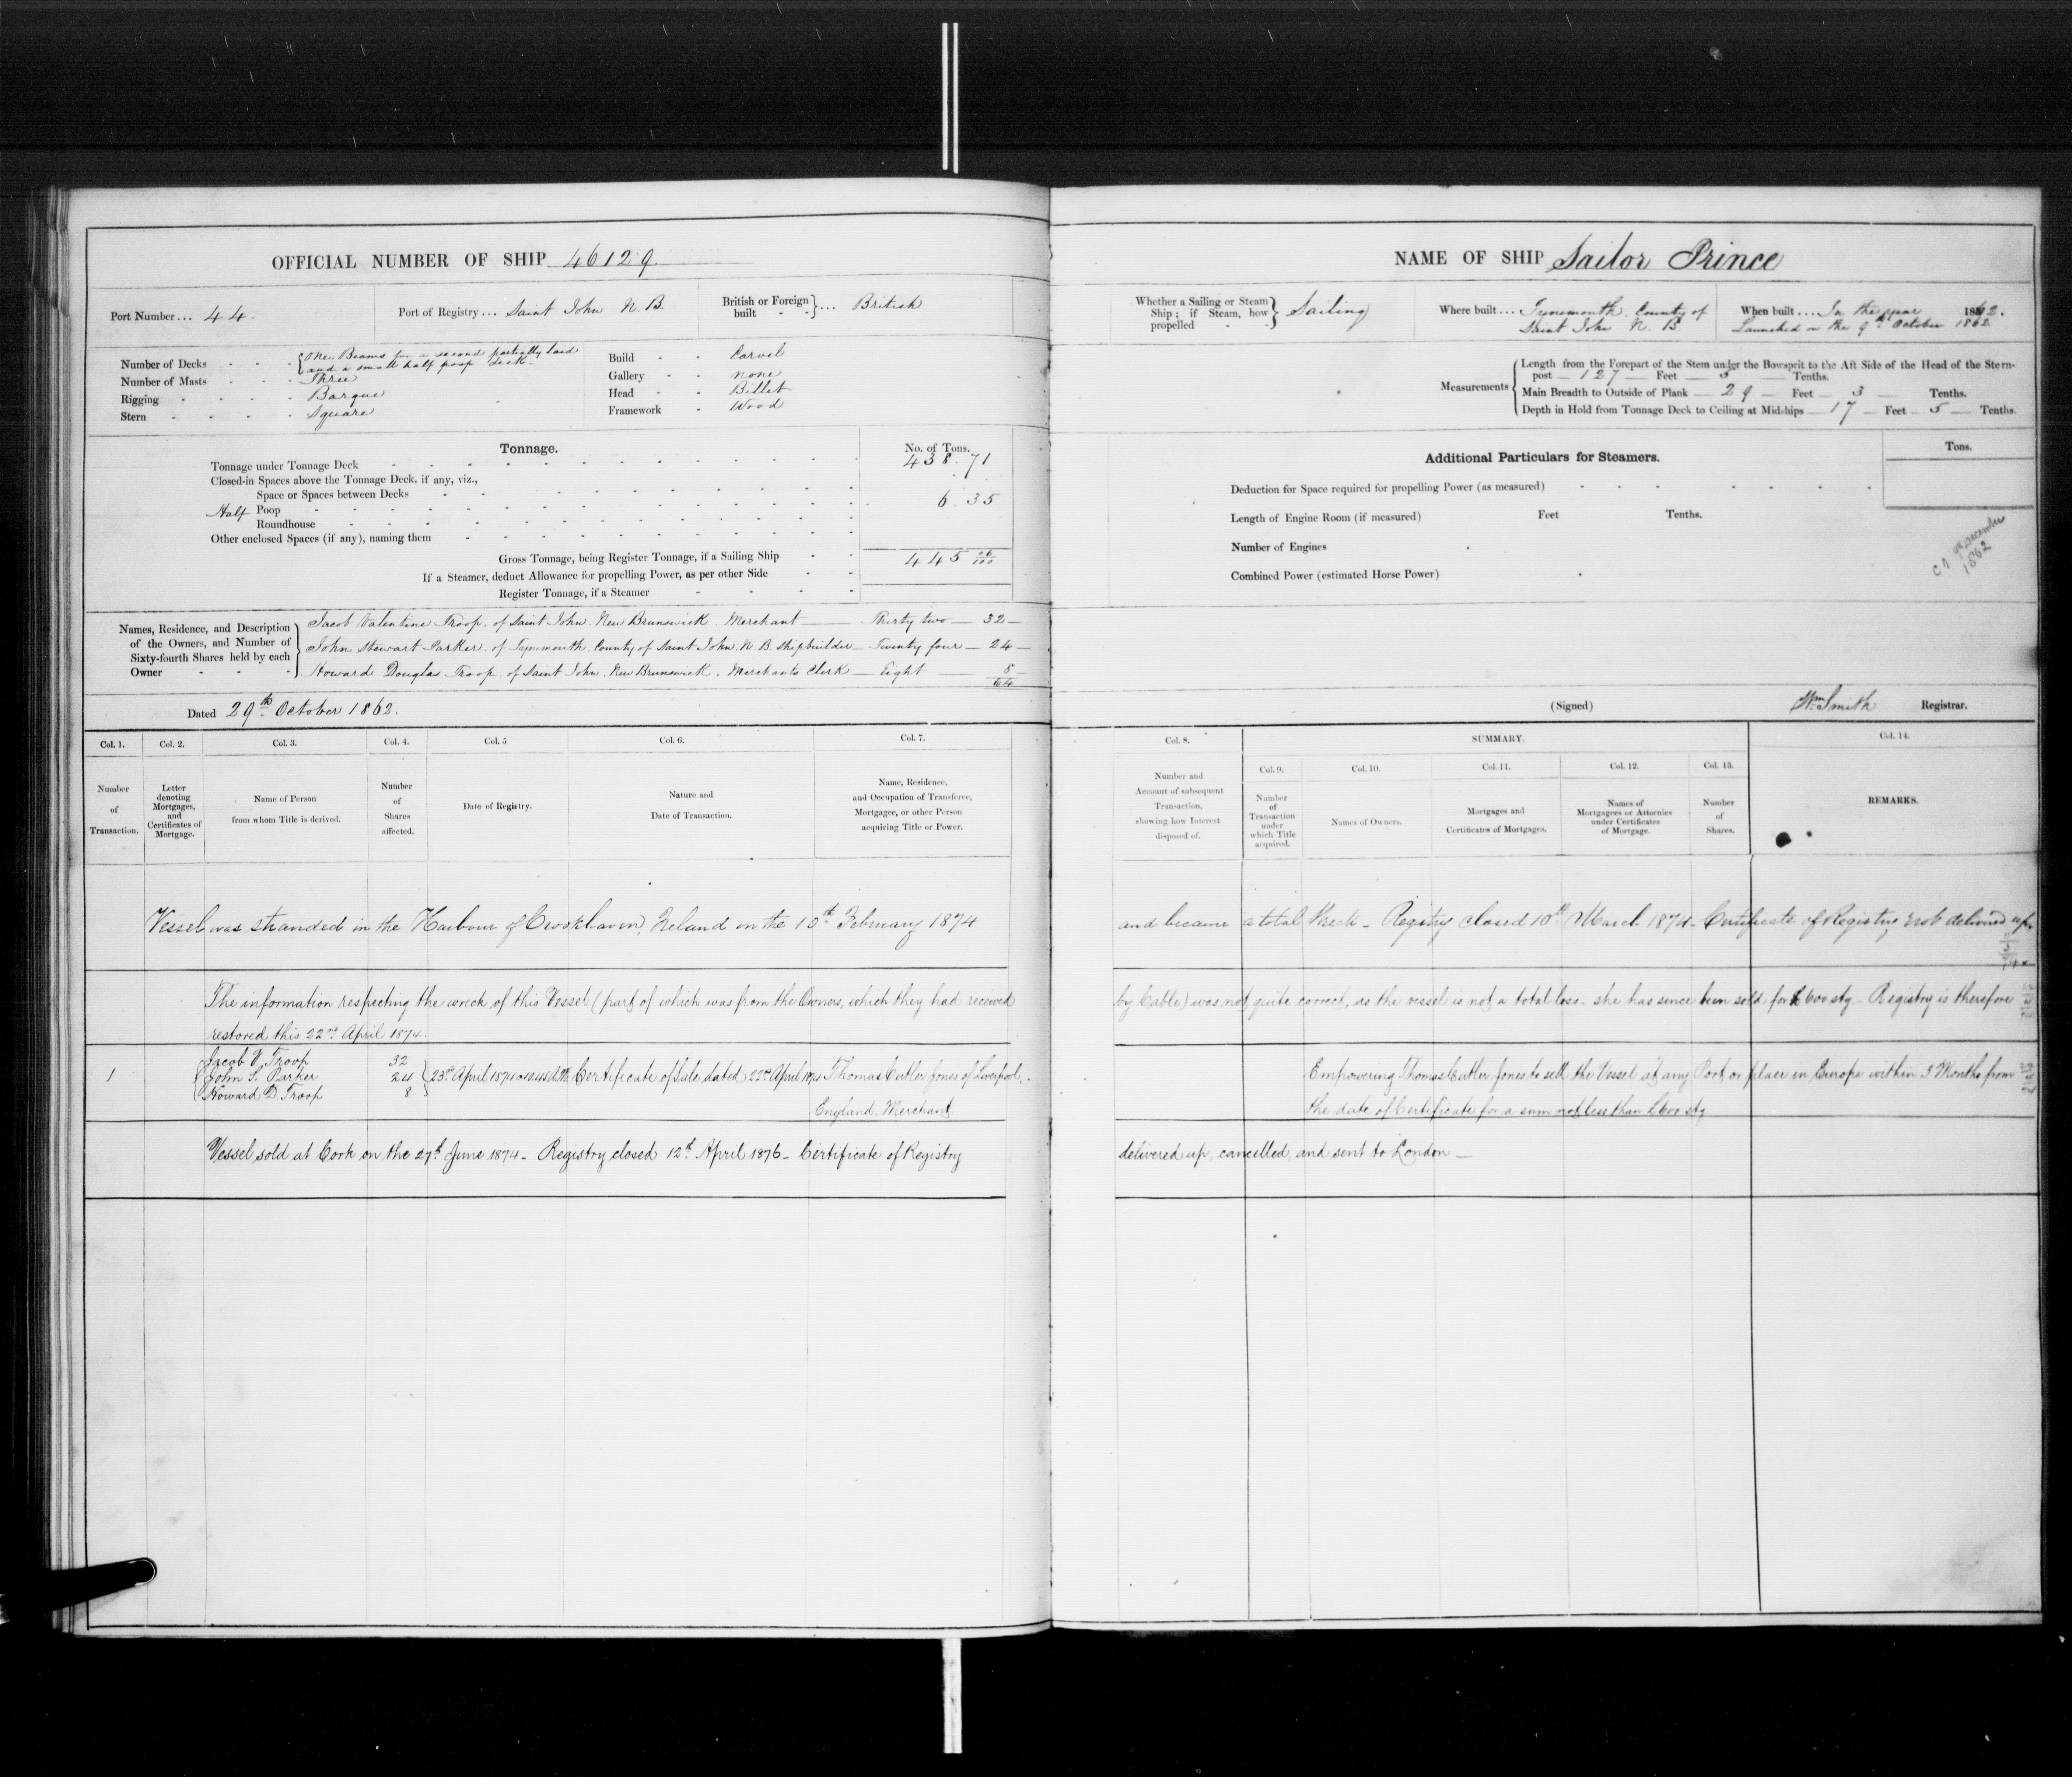 OFFICIAL NUMBER OF SHIP 46129.
Port Number... 44.
Port of Registry... Saint John N. B.
British or Foreign built - - }... British
Number of Decks - - - { One. Beams for a second partially laid
and a small half poop deck
Number of Masts - - - Three
Rigging - - - - Barque
Stern - - - - Square
Build - - Carvel
Gallery - - none
Head - - Billet
Framework - Wood
Tonnage.
No. of Tons.
Tonnage under Tonnage Deck 438.71
Closed-in Spaces above the Tonnage Deck, if any, viz.,
Space or Spaces between Decks
Half Poop 6.35
Roundhouse
Other enclosed Spaces (if any), naming them
Gross Tonnage, being Register Tonnage, if a Sailing Ship 445 06/100
If a Steamer, deduct Allowance for propelling Power, as per other Side
Register Tonnage, if a Steamer
Names, Residence, and Description
of the Owners, and Number of
Sixty-fourth Shares held by each
Owner - - -
Jacob Valentine Troop. of Saint John. New Brunswick. Merchant — Thirty two — 32 —
John Stewart Parker. of Tynemouth. County of Saint John. N. B. Shipbuilder — Twenty four — 24 —
Howard Douglas Troop. of Saint John. New Brunswick. Merchants Clerk — Eight — 8
64
Dated 29th October 1862.
Col. 1. Col. 2. Col. 3. Col. 4. Col. 5 Col. 6. Col. 7.
Number
of
Transaction.
Letter
denoting
Mortgages,
and
Certificates of
Mortgage.
Name of Person
from whom Title is derived.
Number
of
Shares
affected.
Date of Registry.
Nature and
Date of Transaction.
Name, Residence,
and Occupation of Transferee,
Mortgagee, or other Person
acquiring Title or Power.
Vessel was stranded in the Harbour of Crookhaven, Ireland on the 10th February 1874
The information respecting the wreck of this Vessel (part of which was from the Owners, which they had received
restored this 22nd April 1874.
1
Jacob V. Troop 32
John S. Parker 24
Howard D Troop 8
23rd April 1874 10.45 A.M. Certificate of Sale dated 22nd April 1874 Thomas Cutler Jones of Liverpool,
England. Merchant
Vessel sold at Cork on the 27th June 1874 - Registry closed 12th April 1876 - Certificate of Registry
NAME OF SHIP Sailor Prince
Whether a Sailing or Steam
Ship; if Steam, how
propelled - - } Sailing
Where built... Tynemouth. County of
Saint John N. B
When built.... In the year 1862.
Launched on the 9th October 1862
Measurements
Length from the Forepart of the Stem under the Bowsprit to the Aft Side of the Head of the Stern-
post — 127 — Feet — 5 — Tenths.
Main Breadth to Outside of Plank — 29 — Feet — 3 — Tenths.
Depth in Hold from Tonnage Deck to Ceiling at Midships — 17 — Feet — 5 — Tenths.
Additional Particulars for Steamers.
Tons.
Deduction for Space required for propelling Power (as measured)
Length of Engine Room (if measured) Feet Tenths.
Number of Engines
Combined Power (estimated Horse Power)
December
1862
(Signed) Wm. Smith Registrar.
Col. 8. SUMMARY. Col. 14.
Col. 9. Col. 10. Col. 11. Col. 12. Col. 13.
Number and
Account of subsequent
Transaction,
showing how Interest
disposed of.
Number
of
Transaction
under
which Title
acquired.
Names of Owners.
Mortgages and
Certificates of Mortgages.
Names of
Mortgagees or Attornies
under Certificates
of Mortgage.
Number
of
Shares.
REMARKS.
and became a total Wreck - Registry closed 10th March 1874 - Certificate of Registry not delivered up.
by Cable) was not quite correct, as the vessel is not a total loss. she has since been sold for £600 stg - Registry is therefore
Empowering Thomas Cutler Jones to sell the Vessel at any Port or place in Europe within 3 Months from
the date of Certificate for a sum not less than £600 stg
delivered up, cancelled, and sent to London —